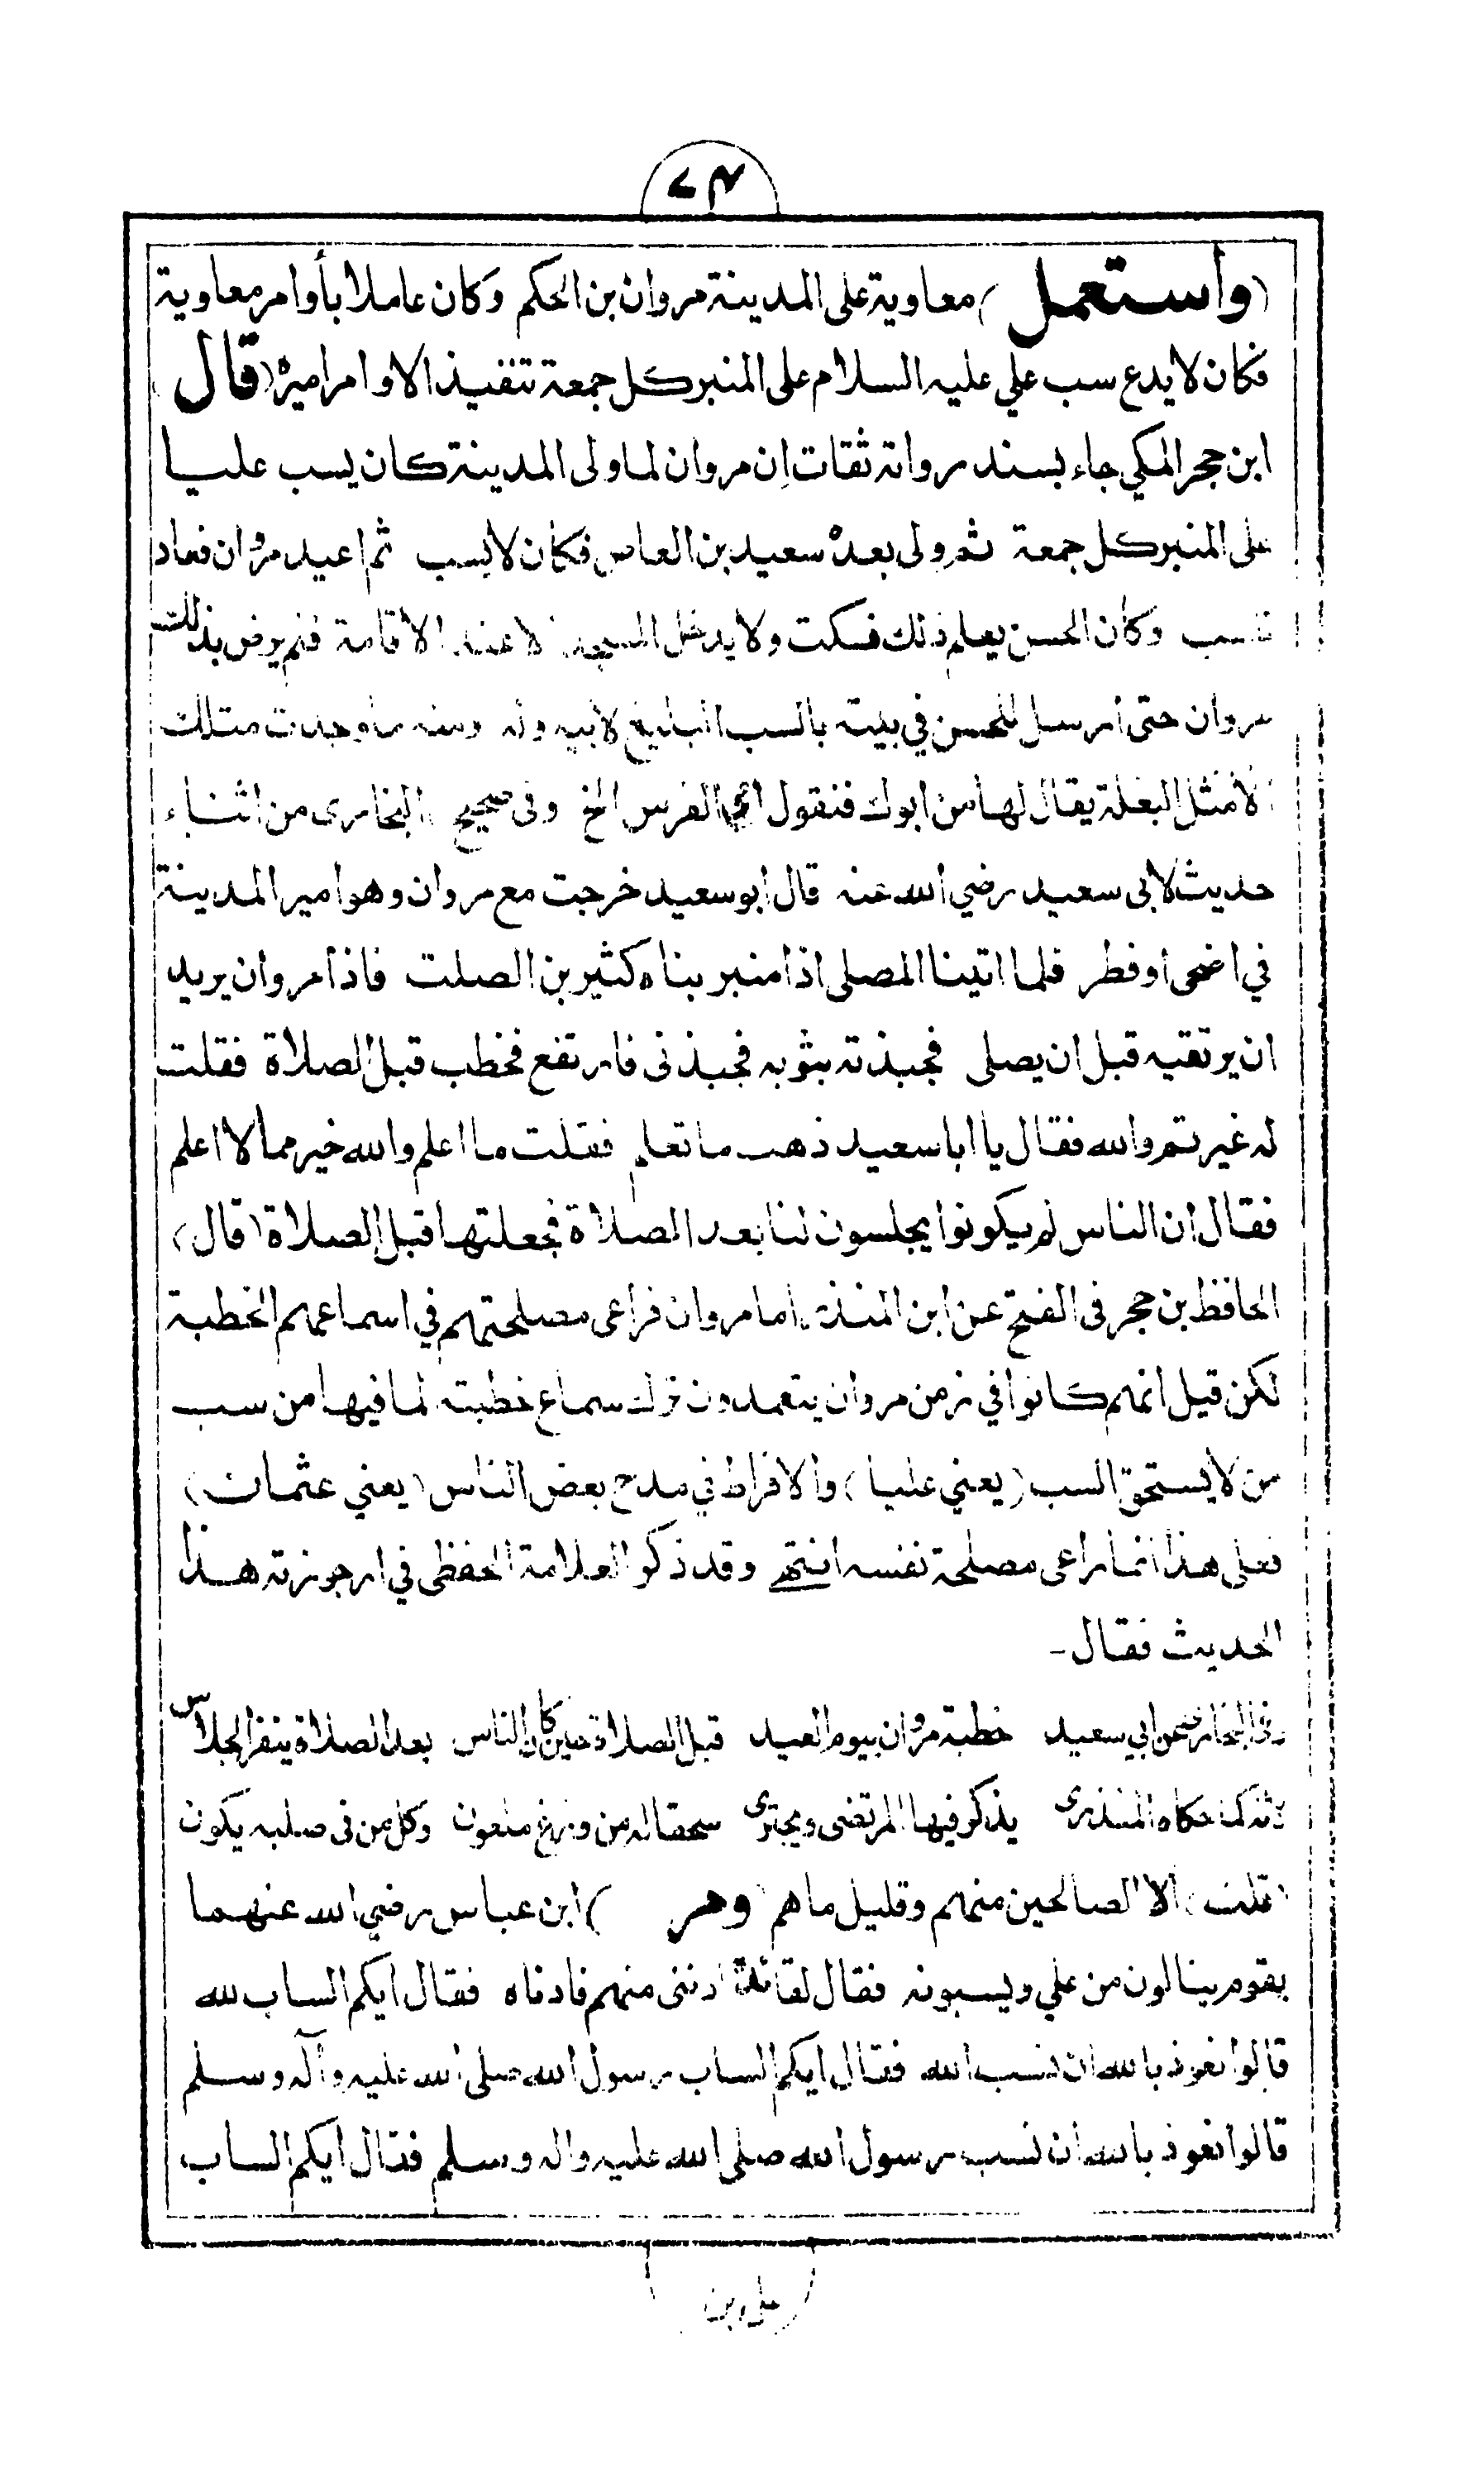 ٧٤
(واستعمل) معاوية على المدينة مروان بن الحكم وكان عاملا بأوامر معاوية
فكان لا يدع سب علي عليه السلام على المنبر كل جمعة تنفيذا لاوامر اميره (قال)
ابن حجر المكي جاء بسند رواته ثقات إن مروان لما ولى المدينة كان يسب عليا
على المنبر كل جمعة ثم ولى بعده سعيد بن العاص فكان لا يسب ثم اعيد مروان فعاد
للسب وكان الحسن يعلم ذلك فسكت ولا يدخل المسجد الا عند الاقامة فلم يرض بذلك
مروان حتى أرسل للحسن في بيته بالسب البليغ لأبيه وله ومنه ما وجدت مثلك
الا مثل البغلة يقال لها من ابوك فتقول أمي الفرس الخ وفى صحيح البخارى من اثناء
حديث لابى سعيد رضي الله عنه قال أبو سعيد خرجت مع مروان وهو امير المدينة
في اضحى أو فطر فلما اتينا المصلى اذا منبر بناه كثير بن الصلت فاذا مروان يريد
ان يرتقيه قبل ان يصلى فجبذته بثوبه فجبذنى فارتفع فخطب قبل الصلاة فقلت
له غيرتم والله فقال يا ابا سعيد ذهب ما تعلم فقلت ما اعلم والله خير مما لا اعلم
فقال ان الناس لم يكونوا يجلسون لنا بعد الصلاة فجعلتها قبل الصلاة (قال)
الحافظ بن حجر فى الفتح عن ابن المنذر اما مروان فراعى مصلحتهم في اسماعهم الخطبة
لكن قيل انهم كانوا في زمن مروان يتعمدون ترك سماع خطبته لما فيها من سب
من لا يستحق السب (يعني عليا) والافراط في مدح بعض الناس (يعني عثمان)
فعلى هذا انما راعى مصلحة نفسه انتهى وقد ذكر العلامة الحفظى في ارجوزته هذا
الحديث فقال -
وفى البخارى عن ابي سعيد خطبة مروان بيوم العيد قبل الصلاة حين كان الناس بعد الصلاة ينفر الجلاس
كما حكاه المنذرى يذكر فيها المرتضى ويجترى سحقا له من وزغ ملعون وكل من فى صلبه يكون
(قلت) الا الصالحين منهم وقليل ما هم (ومر) ابن عباس رضي الله عنهما
بقوم ينالون من علي ويسبونه فقال لقائده أدننى منهم فادناه فقال ايكم الساب لله
قالوا نعوذ بالله ان نسب الله فقال ايكم الساب رسول الله صلى الله عليه وآله وسلم
قالوا نعوذ بالله ان نسب رسول الله صلى الله عليه واله وسلم فقال ايكم الساب
على بن